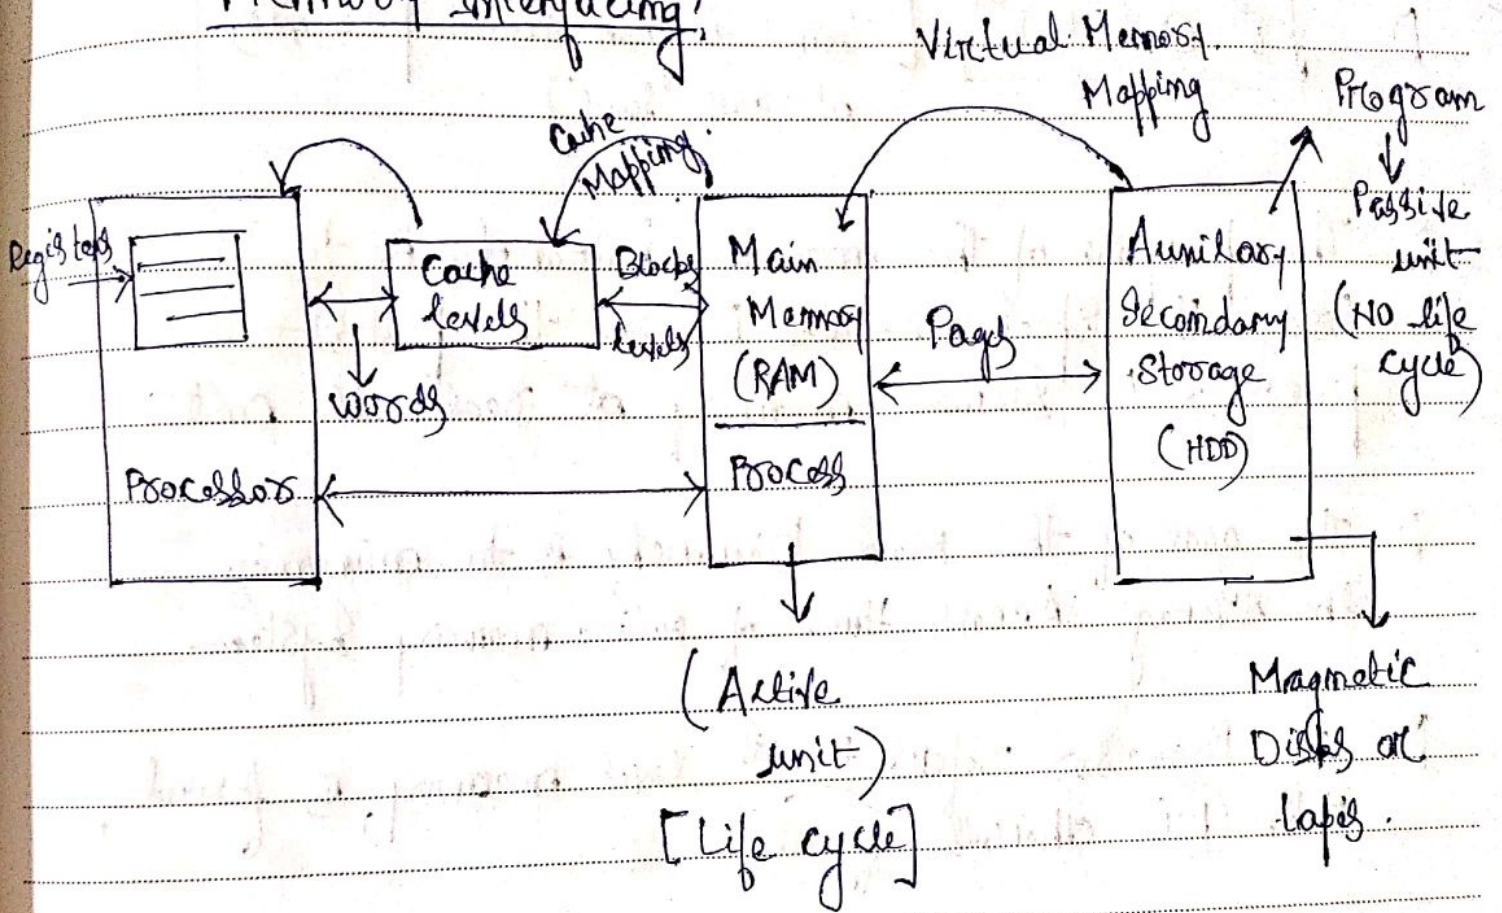 Memory Interfacing:
Virtual Memory
Mapping
Program
Passive
unit
(NO life
cycle)
Cache
Mapping
Registers
Cache
levels
Blocks
levels
words
Processor
Main
Memory
(RAM)
Process
Pages
Auxilary
Secondary
Storage
(HDD)
(Active
unit)
[Life cycle]
Magnetic
Disks or
tapes.